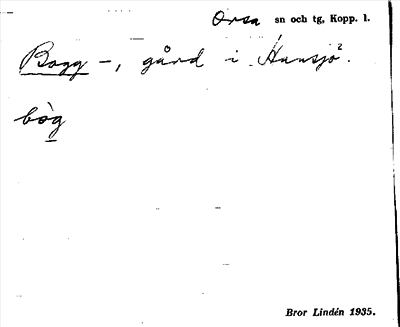 Orsa sn och tg, Kopp. l.
Bogg -, gård i Hansjö².
bòg
Bror Lindén 1935.